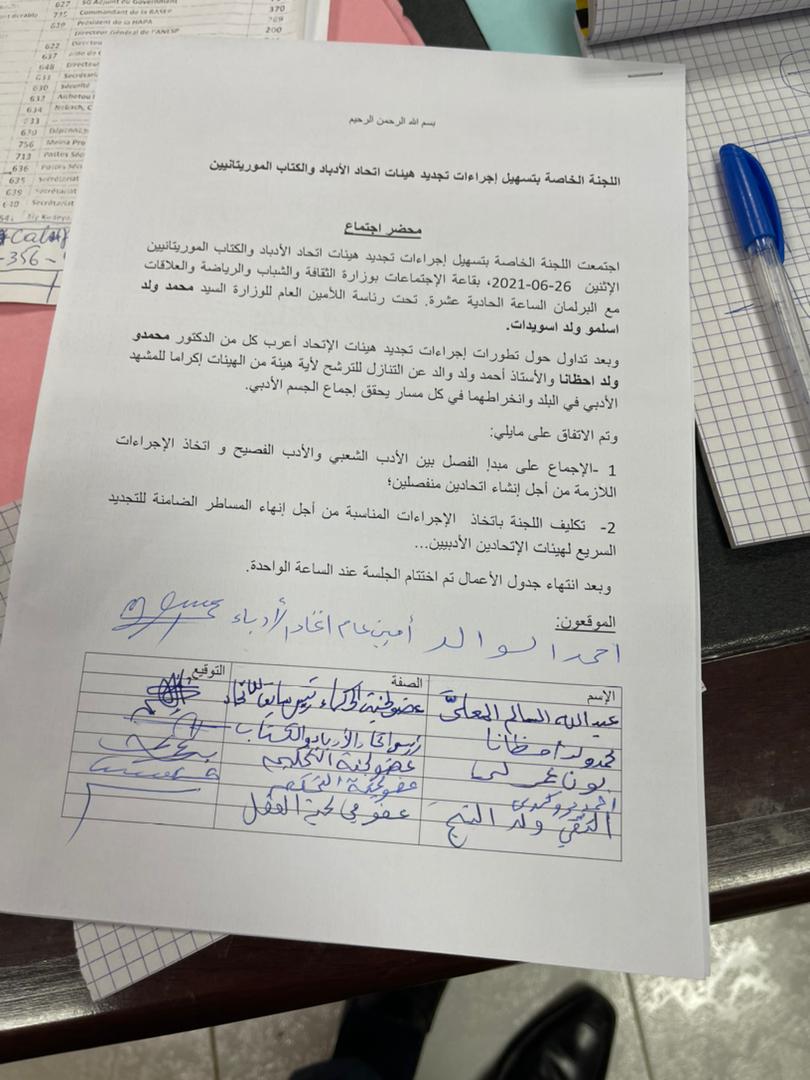 627 SG Adjoint du Gouvernement
735 Commandant de la BASEP 370
639 Président de la HAPA 269
Directeur Général de l'ANESP 200
622
637
648
631
630 Sécurité
632
634
733
670
756
713 Postes
636
635 Secrétariat
639 Secrétariat
640 Secrétariat
بسم الله الرحمن الرحيم
اللجنة الخاصة بتسهيل إجراءات تجديد هيئات اتحاد الأدباد والكتاب الموريتانيين
محضر اجتماع
اجتمعت اللجنة الخاصة بتسهيل إجراءات تجديد هيئات اتحاد الأدباد والكتاب الموريتانيين
الإثنين 26-06-2021، بقاعة الإجتماعات بوزارة الثقافة والشباب والرياضة والعلاقات
مع البرلمان الساعة الحادية عشرة. تحت رئاسة اللأمين العام للوزارة السيد محمد ولد
اسلمو ولد اسويدات.
وبعد تداول حول تطورات إجراءات تجديد هيئات الإتحاد أعرب كل من الدكتور محمدو
ولد احظانا والأستاذ أحمد ولد والد عن التنازل للترشح لأية هيئة من الهيئات إكراما للمشهد
الأدبي في البلد وانخراطهما في كل مسار يحقق إجماع الجسم الأدبي.
وتم الاتفاق على مايلي:
1 -الإجماع على مبدإ الفصل بين الأدب الشعبي والأدب الفصيح و اتخاذ الإجراءات
اللازمة من أجل إنشاء اتحادين منفصلين؛
2- تكليف اللجنة باتخاذ الإجراءات المناسبة من أجل إنهاء المساطر الضامنة للتجديد
السريع لهيئات الإتحادين الأدبيين...
وبعد انتهاء جدول الأعمال تم اختتام الجلسة عند الساعة الواحدة.
الموقعون:
احمد الوالد أمين عام اتحاد الأدباء
الإسم الصفة التوقيع
عبد الله السالم المعلى عضو لجنة الحكماء رئيس سابق للاتحاد
محمدو ولد احظانا رئيس اتحاد الأدباء والكتاب
بون عمر لي عضو لجنة التحكيم
احمد عضو لجنة التحكيم
التقي ولد الشيخ عضو في لجنة